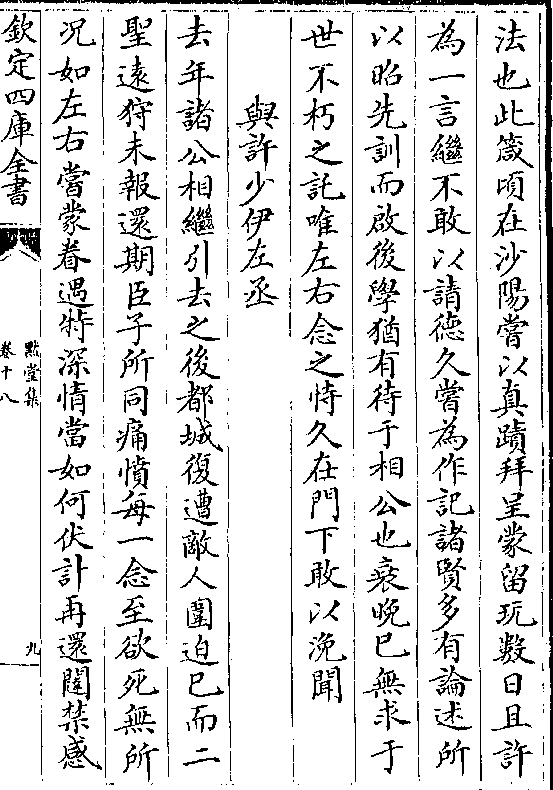 法也此箴頃在沙陽嘗以真蹟拜呈蒙留玩數日且許
為一言繼不敢以請德久嘗為作記諸賢多有論述所
以昭先訓而啟後學猶有待于相公也衰晚已無求于
世不朽之託唯左右念之恃久在門下敢以浼聞
與許少伊左丞
去年諸公相繼引去之後都城復遭敵人圍迫已而二
聖遠狩未報還期臣子所同痛憤每一念至欲死無所
况如左右嘗蒙眷遇特深情當如何伏計再還闗禁感
欽定四庫全書
默堂集
卷十八
九